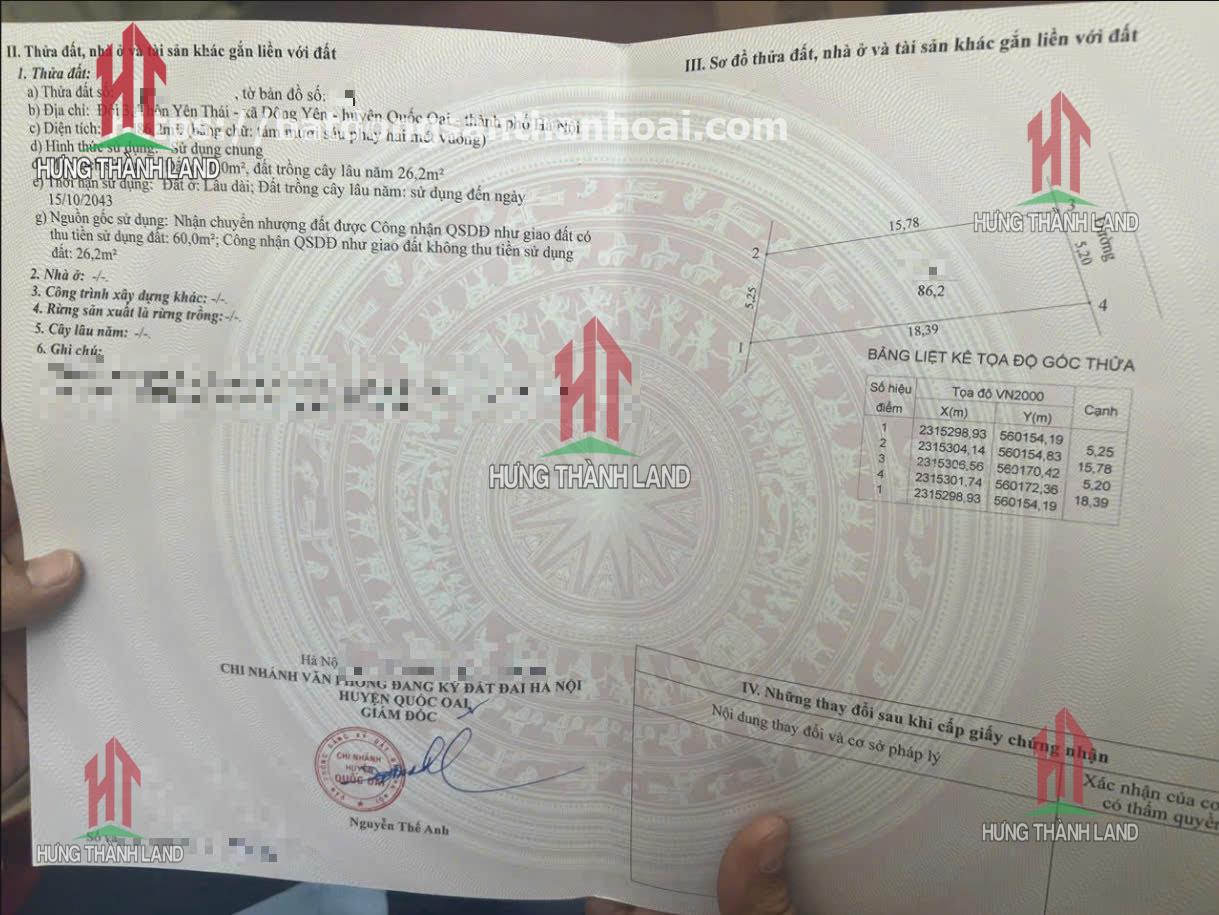 II. Thửa đất, nhà ở và tài sản khác gắn liền với đất
1. Thửa đất:
a) Thửa đất số: , tờ bản đồ số:
b) Địa chỉ: Đội 3, Thôn Yên Thái - xã Đông Yên - huyện Quốc Oai - thành phố Hà Nội
c) Diện tích: 86,2m² (bằng chữ: tám mươi sáu phẩy hai mét vuông)
d) Hình thức sử dụng: sử dụng chung
0m², đất trồng cây lâu năm 26,2m²
e) Thời hạn sử dụng: Đất ở: Lâu dài; Đất trồng cây lâu năm: sử dụng đến ngày
15/10/2043
g) Nguồn gốc sử dụng: Nhận chuyển nhượng đất được Công nhận QSDĐ như giao đất có
thu tiền sử dụng đất: 60,0m²; Công nhận QSDĐ như giao đất không thu tiền sử dụng
đất: 26,2m²
2. Nhà ở: -/-.
3. Công trình xây dựng khác: -/-.
4. Rừng sản xuất là rừng trồng:-/-.
5. Cây lâu năm: -/-.
6. Ghi chú:
Hà Nộ
CHI NHÁNH VĂN PHÒNG ĐĂNG KÝ ĐẤT ĐAI HÀ NỘI
HUYỆN QUỐC OAI
GIÁM ĐỐC
CHI NHÁNH
HUYỆN
QUỐC OAI
Nguyễn Thế Anh
Số và
III. Sơ đồ thửa đất, nhà ở và tài sản khác gắn liền với đất
15,78
3
Đường
2
5,20
86,2
5,25
4
18,39
1
BẢNG LIỆT KÊ TỌA ĐỘ GÓC THỬA
Số hiệu điểm Tọa độ VN2000 Cạnh
X(m) Y(m)
1 2315298,93 560154,19
5,25
2 2315304,14 560154,83
15,78
3 2315306,56 560170,42
5,20
4 2315301,74 560172,36
18,39
1 2315298,93 560154,19
IV. Những thay đổi sau khi cấp giấy chứng nhận
Nội dung thay đổi và cơ sở pháp lý
Xác nhận của cơ
có thẩm quyền
HƯNG THÀNH LAND
HƯNG THÀNH LAND
HƯNG THÀNH LAND
HƯNG THÀNH LAND
HƯNG THÀNH LAND